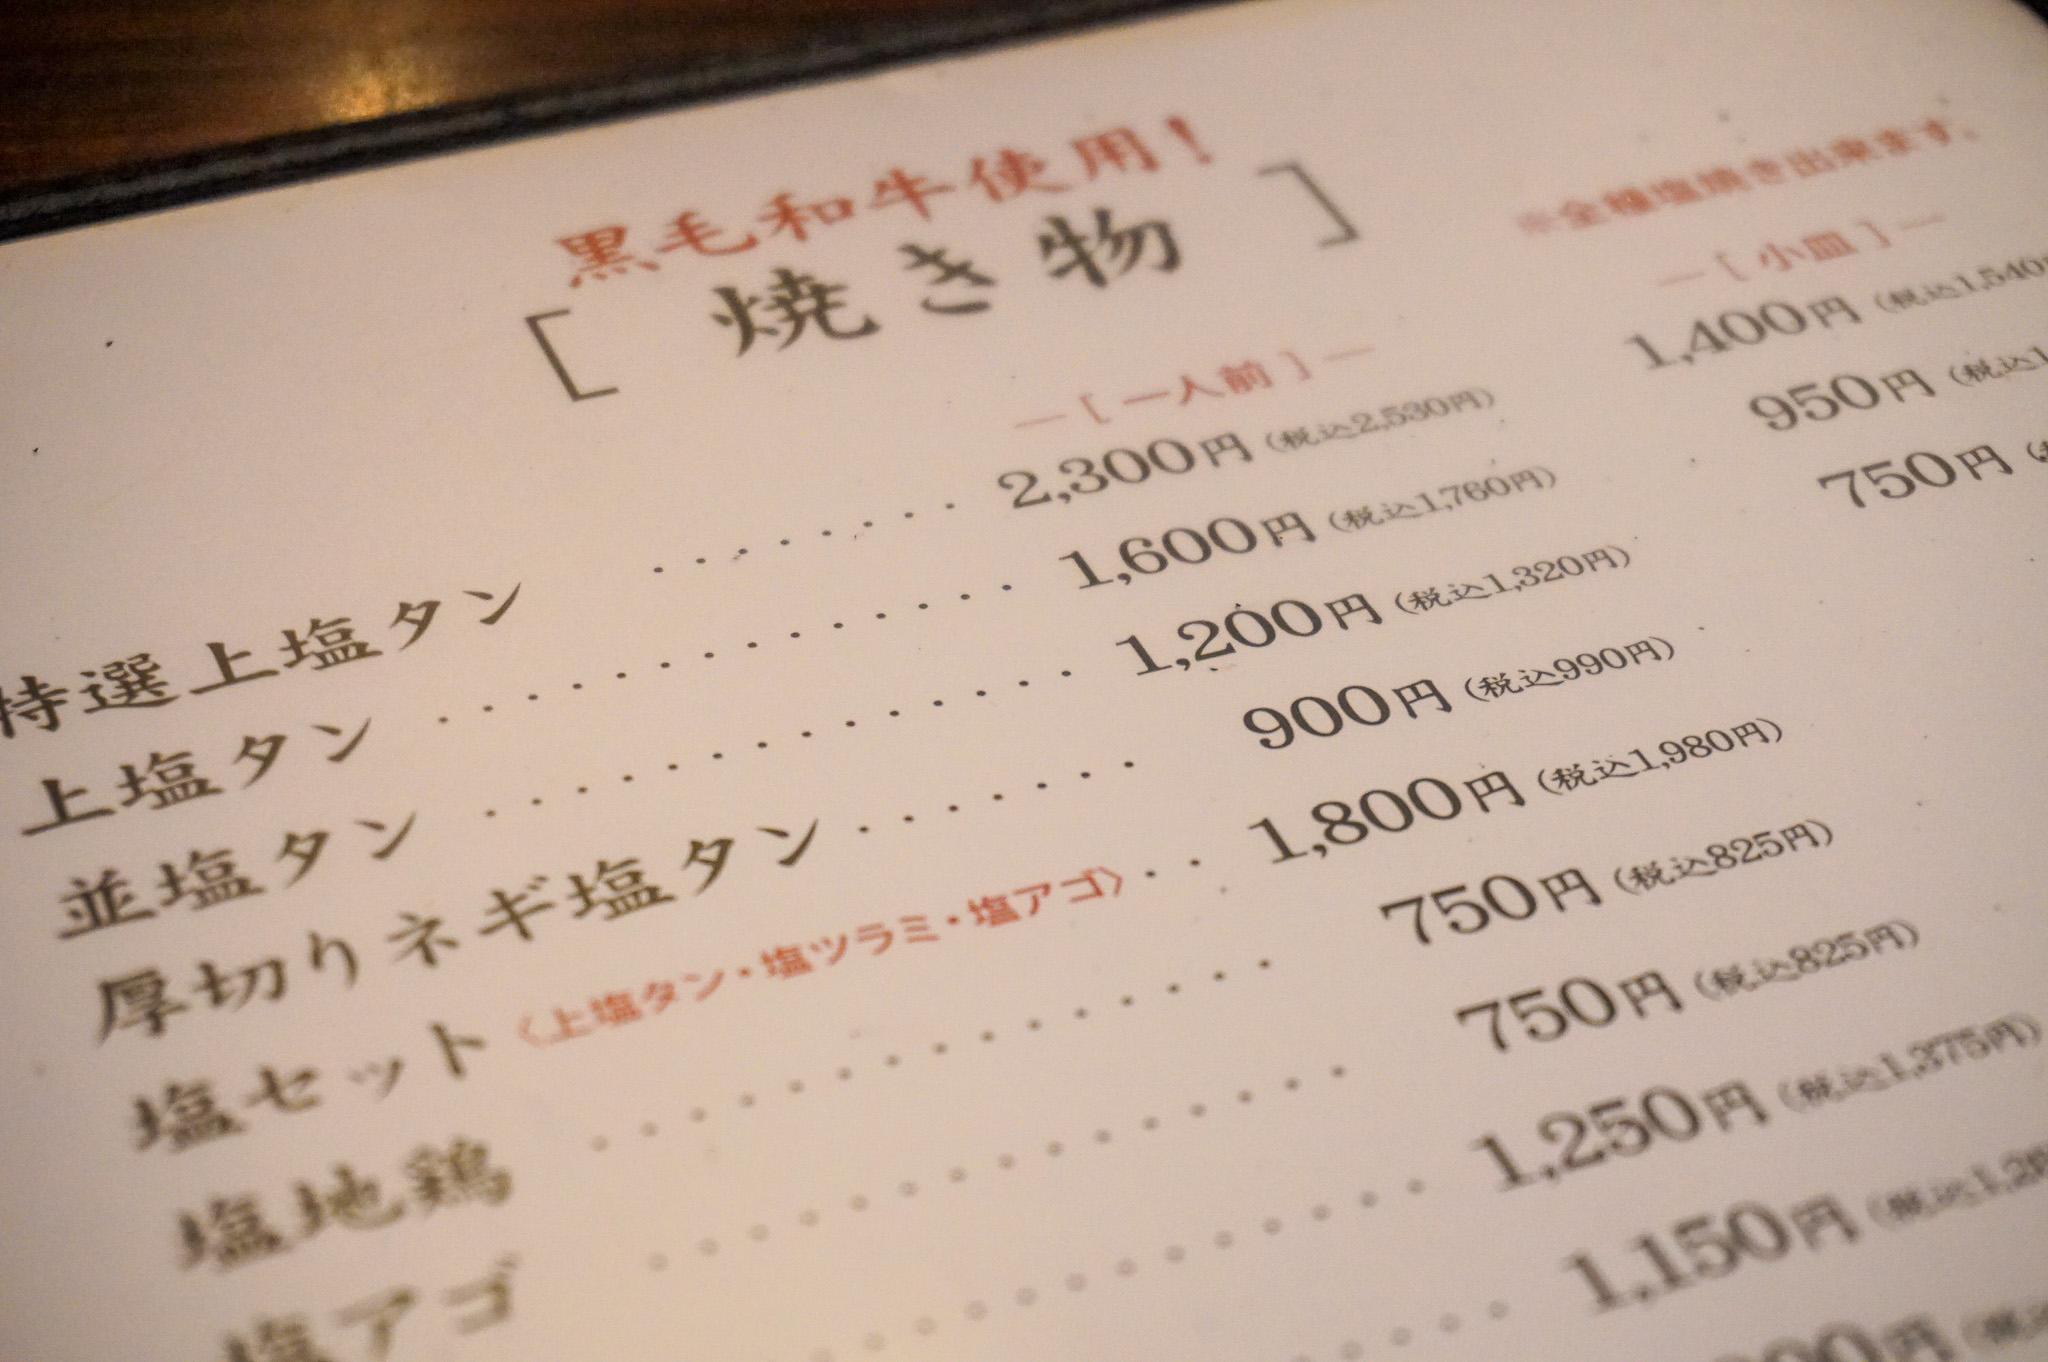 黒毛和牛使用!
[ 焼き物 ]
※全種塩焼き出来ます。
[ 一人前 ]
[ 小皿 ]
特選上塩タン ········ 2,300円 (税込2,530円) 1,400円 (税込1,540
上塩タン ·············· 1,600円 (税込1,760円) 950円 (税込1
並塩タン ·············· 1,200円 (税込1,320円) 750円 (
厚切りネギ塩タン ······· 900円 (税込990円)
塩セット〈上塩タン・塩ツラミ・塩アゴ〉·· 1,800円 (税込1,980円)
塩地鶏 ·············· 750円 (税込825円)
塩アゴ ·············· 750円 (税込825円)
1,250円 (税込1,375円)
1,150円 (税込1,2